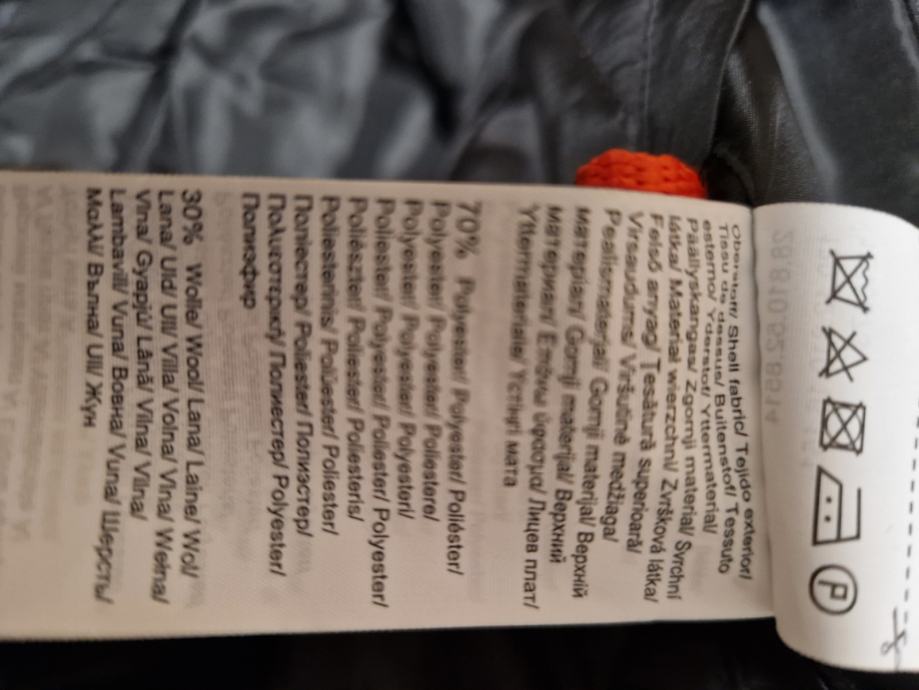 P
Oberstoff/ Shell fabric/ Tejido exterior/
Tissu de dessus/ Buitenstof/ Tessuto
esterno/ Yderstof/ Yttermaterial/
Päällyskangas/ Zgornji material/ Svrchní
látka/ Materiał wierzchni/ Zvršková látka/
Felső anyag/ Tesătură superioară/
Virsaudums/ Viršutinė medžiaga/
Pealismaterjal/ Gornji materijal/ Верхній
матеріал/ Gornji materijal/ Верхний
материал/ Επάνω ύφασμα/ Лицев плат/
Yttermateriale/ Үстіңгі мата
70% Polyester/ Polyester/ Poliéster/
Polyester/ Polyester/ Poliestere/
Polyester/ Polyester/ Polyesteri/
Poliester/ Polyester/ Poliester/ Polyester/
Poliészter/ Poliester/ Poliesteris/
Poliesteris/ Polüester/ Poliester/
Поліестер/ Poliester/ Полиэстер/
Πολυεστερική/ Полиестер/ Polyester/
Полиэфир
30% Wolle/ Wool/ Lana/ Laine/ Wol/
Lana/ Uld/ Ull/ Villa/ Volna/ Vlna/ Wełna/
Vlna/ Gyapjú/ Lână/ Vilna/ Vilna/
Lambavill/ Vuna/ Вовна/ Vuna/ Шерсть/
Μαλλί/ Вълна/ Ull/ Жүн